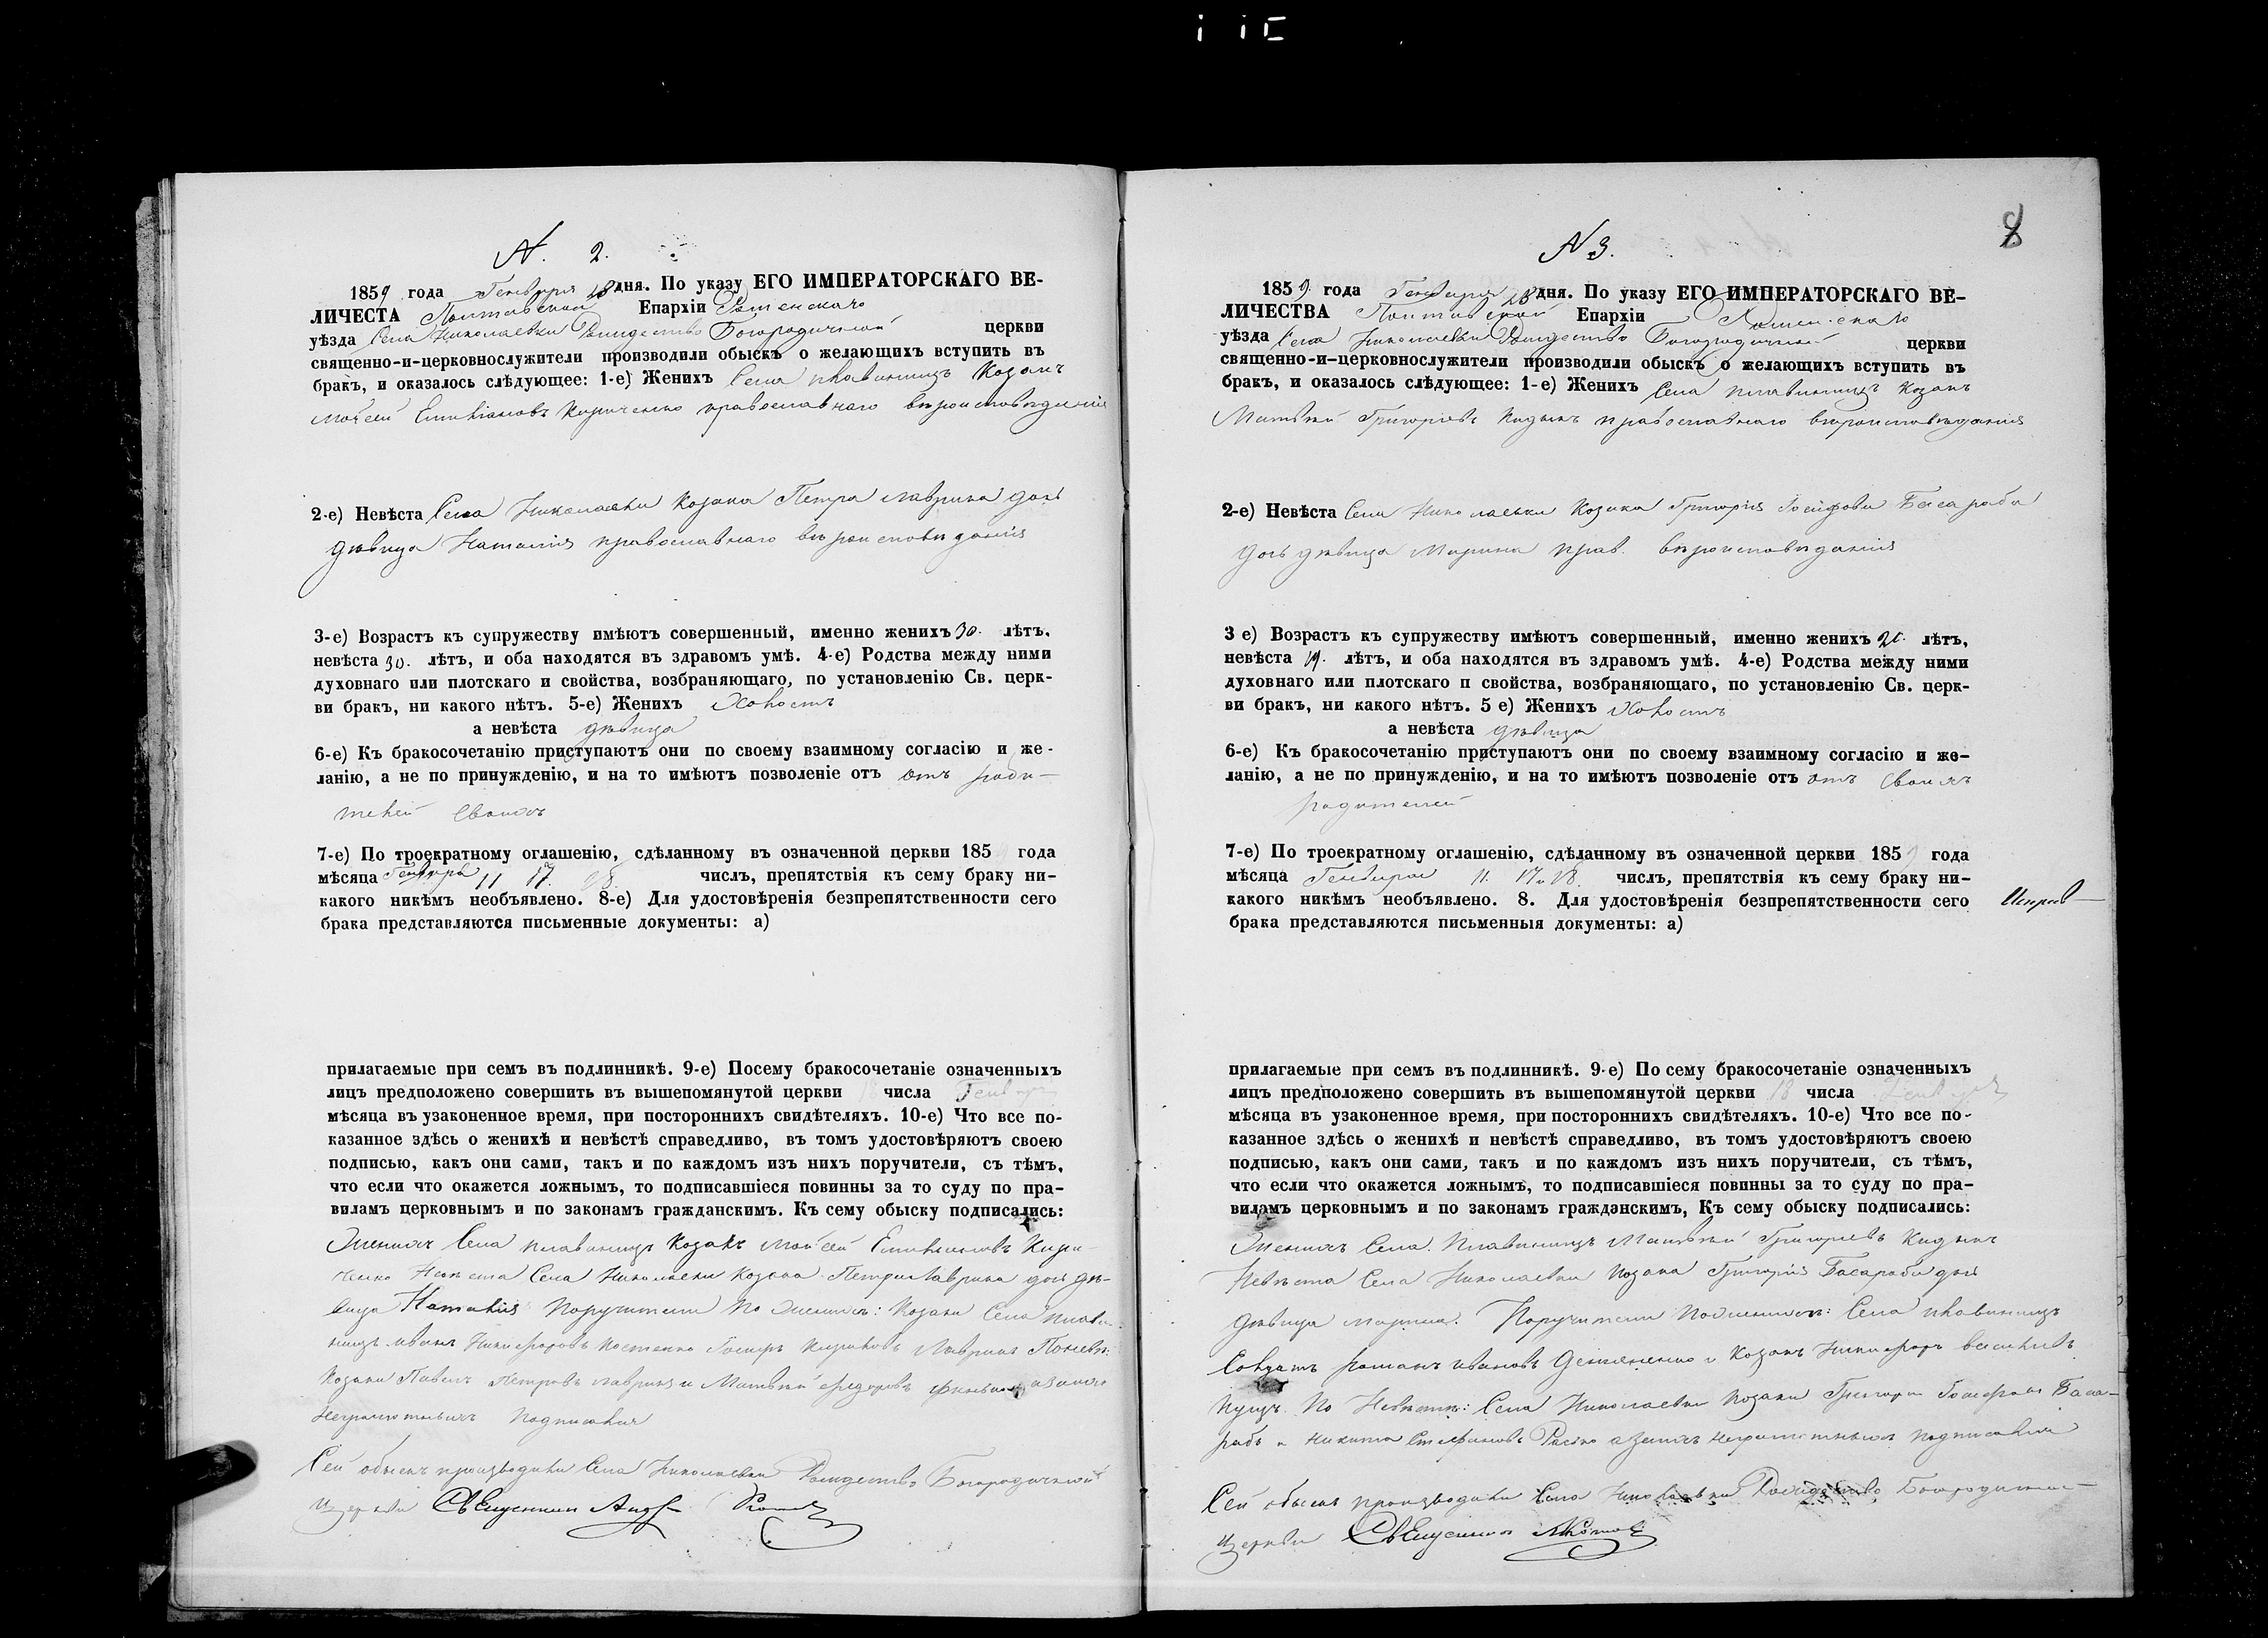 N. 2.
1859 года Генваря 18 дня. По указу ЕГО ИМПЕРАТОРСКАГО ВЕ-
ЛИЧЕСТА Полтавской Епархіи Роменскаго
уѣзда Села Николаевки Рождество Богородичной церкви
священно-и-церковнослужители производили обыскъ о желающихъ вступить въ
бракъ, и оказалось слѣдующее: 1-е) Женихъ Села Плавинищъ Козакъ
Мойсей Емиліановъ Кириченко православнаго вѣроисповѣданія
2-е) Невѣста Села Николаевки Козака Петра Лаврина дочь
дѣвица Наталія православнаго вѣроисповѣданія
3-е) Возрастъ къ супружеству имѣютъ совершенный, именно женихъ 30. лѣтъ,
невѣста 30. лѣтъ, и оба находятся въ здравомъ умѣ. 4-е) Родства между ними
духовнаго или плотскаго и свойства, возбраняющаго, по установленію Св. церк-
ви бракъ, ни какого нѣтъ. 5-е) Женихъ Холостъ
а невѣста дѣвица
6-е) Къ бракосочетанію приступаютъ они по своему взаимному согласію и же-
ланію, а не по принужденію, и на то имѣютъ позволеніе отъ отъ роди-
телей своихъ
7-е) По троекратному оглашенію, сдѣланному въ означенной церкви 185 года
мѣсяца Генваря 11 17 18. числъ, препятствія къ сему браку ни-
какого никѣмъ необъявлено. 8-е) Для удостовѣренія безпрепятственности сего
брака представляются письменные документы: а)
прилагаемые при семъ въ подлинникѣ. 9-е) Посему бракосочетаніе означенныхъ
лицъ предположено совершить въ вышепомянутой церкви 18 числа Генваря
мѣсяца въ узаконенное время, при постороннихъ свидѣтеляхъ. 10-е) Что все по-
казанное здѣсь о женихѣ и невѣстѣ справедливо, въ томъ удостовѣряютъ своею
подписью, какъ они сами, такъ и по каждомъ изъ нихъ поручители, съ тѣмъ,
что если что окажется ложнымъ, то подписавшіеся повинны за то суду по пра-
виламъ церковнымъ и по законамъ гражданскимъ. Къ сему обыску подписались:
Женихъ Села Плавинищъ Козакъ Мойсей Емиліановъ Кири-
ченко Невѣста Села Николаевки Козака Петра Лаврина дочь дѣ-
вица Наталія Поручители по Женихѣ: Козаки Села Плави-
нищъ Иванъ Никифоровъ Костенко Іосифъ Лавринъ По невѣ:
Козаки Павелъ Петровъ Лавринъ и Матвѣй Федоровъ а за нихъ
Неграмотныхъ подписался
Сей обыскъ производили Села Николаевки Рождество Богородичной
Церкви Священникъ
N 3.
8
1859 года Генваря 18 дня. По указу ЕГО ИМПЕРАТОРСКАГО ВЕ-
ЛИЧЕСТВА Полтавской Епархіи Роменскаго
уѣзда Села Николаевки Рождество Богородичной церкви
священно-и-церковнослужители производили обыскъ о желающихъ вступить въ
бракъ, и оказалось слѣдующее: 1-е) Женихъ Села Плавинищъ Козакъ
Матвѣй Григоріевъ Кидынъ православнаго вѣроисповѣданія
2-е) Невѣста Села Николаевки Козака Григорія Іосифова Басараба
дочь дѣвица Марина прав. вѣроисповѣданія
3 е) Возрастъ къ супружеству имѣютъ совершенный, именно женихъ лѣтъ,
невѣста 19. лѣтъ, и оба находятся въ здравомъ умѣ. 4-е) Родства между ними
духовнаго или плотскаго п свойства, возбраняющаго, по установленію Св. церк-
ви бракъ, ни какого нѣтъ. 5 е) Женихъ Холостъ
а невѣста дѣвица
6-е) Къ бракосочетанію приступаютъ они по своему взаимному согласію и же-
ланію, а не по принужденію, и на то имѣютъ позволеніе отъ отъ своихъ
родителей
7-е) По троекратному оглашенію, сдѣланному въ означенной церкви 1859 года
мѣсяца Генваря 11. 17 и 18. числъ, препятствія къ сему браку ни-
какого никѣмъ необъявлено. 8. Для удостовѣренія безпрепятственности сего
брака представляются письменныя документы: а)
прилагаемые при семъ въ подлинникѣ. 9-е) По сему бракосочетаніе означенныхъ
лицъ предположено совершить въ вышепомянутой церкви 18 числа Генваря
мѣсяца въ узаконенное время, при постороннихъ свидѣтеляхъ. 10-е) Что все по-
казанное здѣсь о женихѣ и невѣстѣ справедливо, въ томъ удостовѣряютъ своею
подписью, какъ они сами, такъ и по каждомъ изъ нихъ поручители, съ тѣмъ,
что если что окажется ложнымъ, то подписавшіеся повинны за то суду по пра-
виламъ церковнымъ и по законамъ гражданскимъ, Къ сему обыску подписались:
Женихъ Села. Плавинищъ Матвѣй Григоріевъ Кидынъ
Невѣста Села Николаевки Козака Григорія Басараба дочь
дѣвица Марина. Поручители по женихѣ: Села Плавинищъ
Солдатъ Романъ Ивановъ и Козакъ Никифоръ Василіевъ
Куцъ. По Невѣстѣ: Села Николаевки Козаки Григорій Іосифовъ Баса-
рабъ и Никита Стефановъ а за нихъ неграмотныхъ подписался
Сей обыскъ производили Села Николаевки Рождество Богородичной
Церкви Священникъ